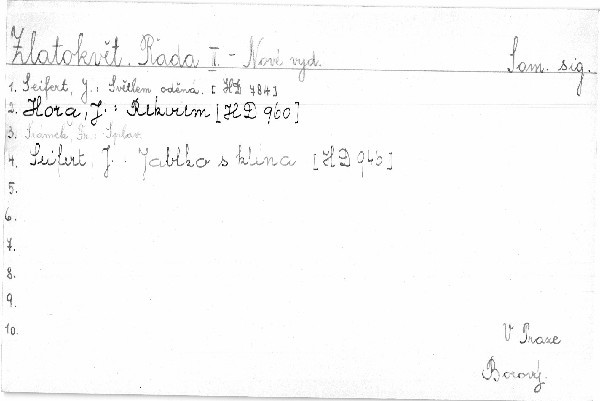 Zlatokvět. Řada II. - Nové vyd. Sam. sig.
1. Seifert, J.: Světlem oděná. [HD 784]
2. Hora, J.: Rekviem [HD 960]
3. Šrámek, Fr.: Splav.
4. Seifert, J.: Jablko s klína [HD 946]
5.
6.
7.
8.
9.
10.
V Praze
Borový.